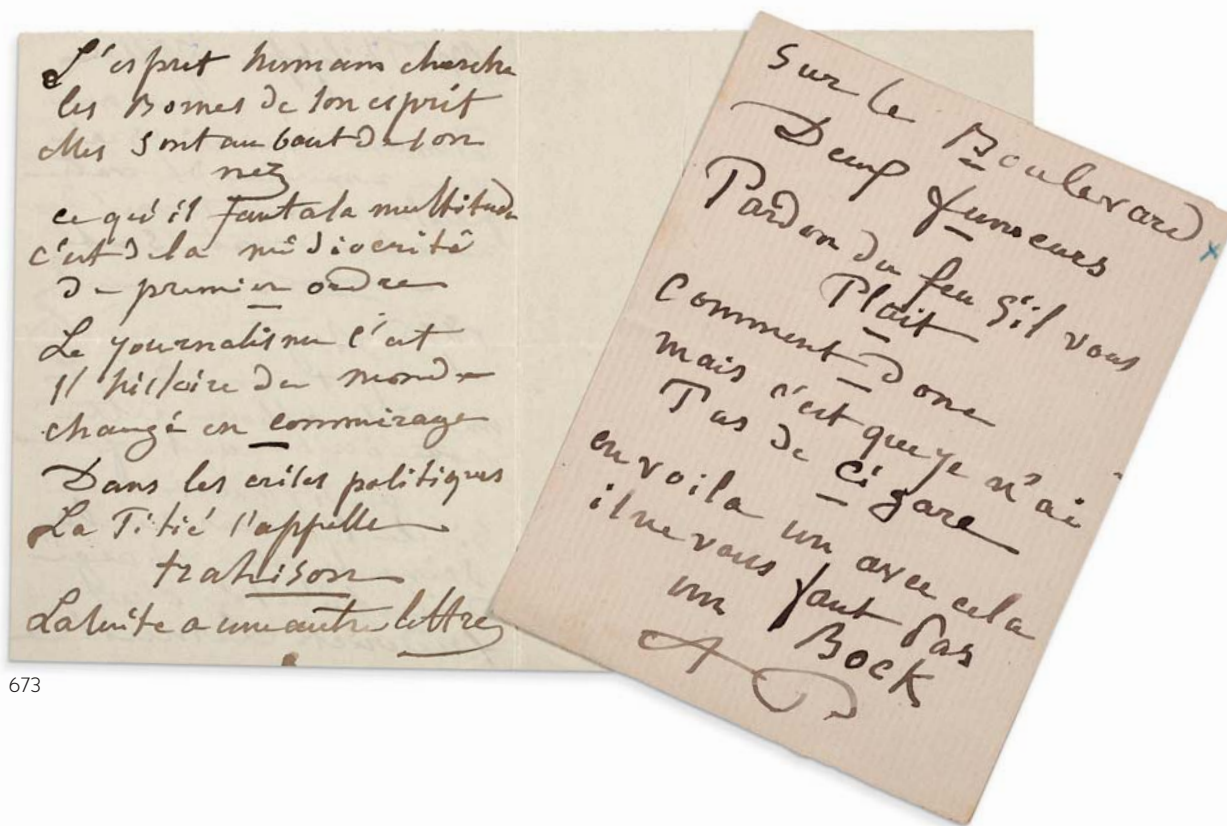 L'esprit humain cherche
les Bornes de son esprit
elles sont au bout de son
nez
ce qu'il faut a la multitude
c'est de la médiocrité
de premier ordre
Le journalisme c'est
l'histoire du monde
changé en commirage
Dans les crises politiques
La Pitié s'appelle
trahison
La suite a une autre lettre
Sur le Boulevard
Deux fumeurs
Pardon du feu s'il vous
Plait
Comment donc
mais c'est que je n'ai
Pas de Cigare
en voila un avec cela
il ne vous faut pas
un Bock
673